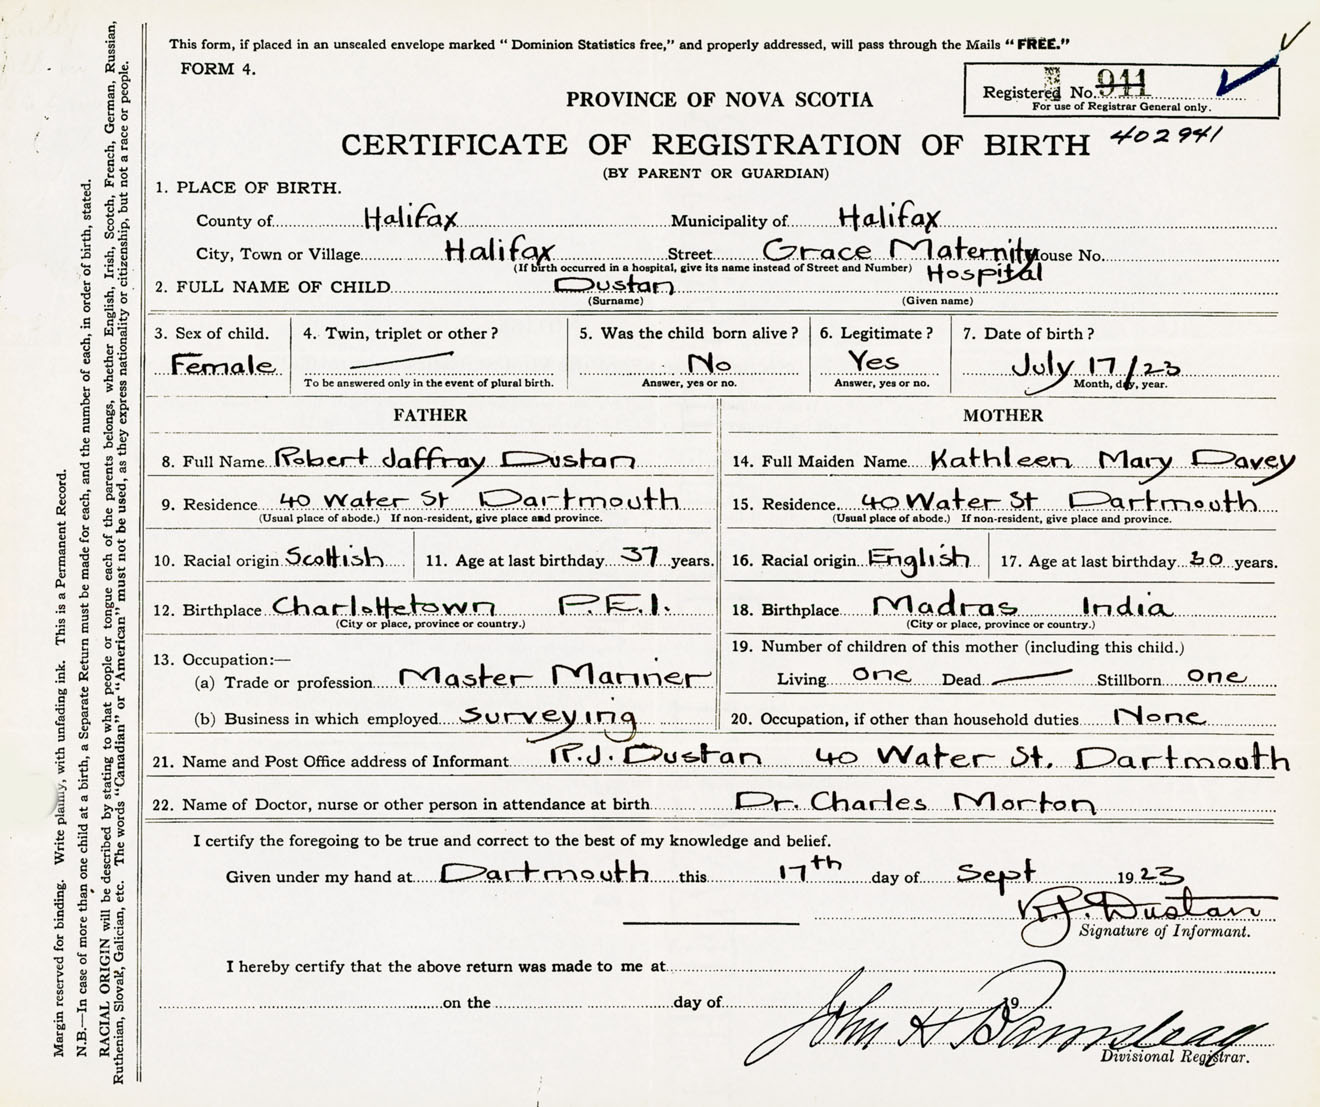 This form, if placed in an unsealed envelope marked " Dominion Statistics free," and properly addressed, will pass through the Mails " FREE."
FORM 4.
Registered No. 941
For use of Registrar General only.
PROVINCE OF NOVA SCOTIA
CERTIFICATE OF REGISTRATION OF BIRTH 402941
(BY PARENT OR GUARDIAN)
1. PLACE OF BIRTH.
County of Halifax Municipality of Halifax
City, Town or Village Halifax Street Grace Maternity House No.
(If birth occurred in a hospital, give its name instead of Street and Number) Hospital
2. FULL NAME OF CHILD Dustan
(Surname) (Given name)
3. Sex of child. 4. Twin, triplet or other? 5. Was the child born alive? 6. Legitimate? 7. Date of birth?
Female No Yes July 17/23
To be answered only in the event of plural birth. Answer, yes or no. Answer, yes or no. Month, day, year.
FATHER MOTHER
8. Full Name Robert Jaffray Dustan 14. Full Maiden Name Kathleen Mary Davey
9. Residence 40 Water St Dartmouth 15. Residence 40 Water St Dartmouth
(Usual place of abode.) If non-resident, give place and province. (Usual place of abode.) If non-resident, give place and province.
10. Racial origin Scottish 11. Age at last birthday 37 years. 16. Racial origin English 17. Age at last birthday 30 years.
12. Birthplace Charlottetown P.E.I. 18. Birthplace Madras India
(City or place, province or country.) (City or place, province or country.)
13. Occupation:— 19. Number of children of this mother (including this child.)
(a) Trade or profession Master Mariner Living one Dead — Stillborn one
(b) Business in which employed Surveying 20. Occupation, if other than household duties None
21. Name and Post Office address of Informant R.J. Dustan 40 Water St. Dartmouth
22. Name of Doctor, nurse or other person in attendance at birth Dr. Charles Morton
I certify the foregoing to be true and correct to the best of my knowledge and belief.
Given under my hand at Dartmouth this 17th day of Sept 1923
R.J. Dustan
Signature of Informant.
I hereby certify that the above return was made to me at
on the day of 19
John H
Divisional Registrar.
Margin reserved for binding. Write plainly, with unfading ink. This is a Permanent Record.
N.B.—In case of more than one child at a birth, a Separate Return must be made for each, and the number of each, in order of birth, stated.
RACIAL ORIGIN will be described by stating to what people or tongue each of the parents belongs, whether English, Irish, Scotch, French, German, Russian,
Ruthenian, Slovak, Galician, etc. The words "Canadian" or "American" must not be used, as they express nationality or citizenship, but not a race or people.